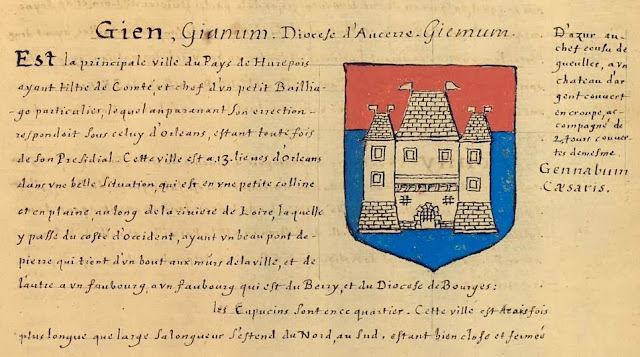 Gien, Gianum. Diocese d'Aucerre. Giemum.
Est la principale ville du Pays de Hurepois
ayant tiltre de Comté, et chef d'vn petit Baillia-
ge particulier, lequel auparauant son erection
respondoit sous celuy d'Orleans, estant toute fois
de son Presidial. Cette ville est a .13. lieues d'Orleans
dans vne belle situation, qui est en vne petite colline
et en plaine, au long de la riviere de Loire, laquelle
y passe du costé d'Occident, ayant vn beau pont de
pierre qui tient d'vn bout aux murs de la ville, et de
l'autre a vn faubourg, a vn faubourg qui est du Berry, et du Diocese de Bourges:
les Capucins sont en ce quartier. Cette ville est trois fois
plus longue que large sa longueur s'estend du Nord, au Sud. estant bien close et fermée
D'azur au
chef cousu de
gueulles, a vn
chasteau d'ar
gent couvert
en croupe, ac-
compagné de
2. tours couver
tes de mesme.
Gennabum
Cæsaris.